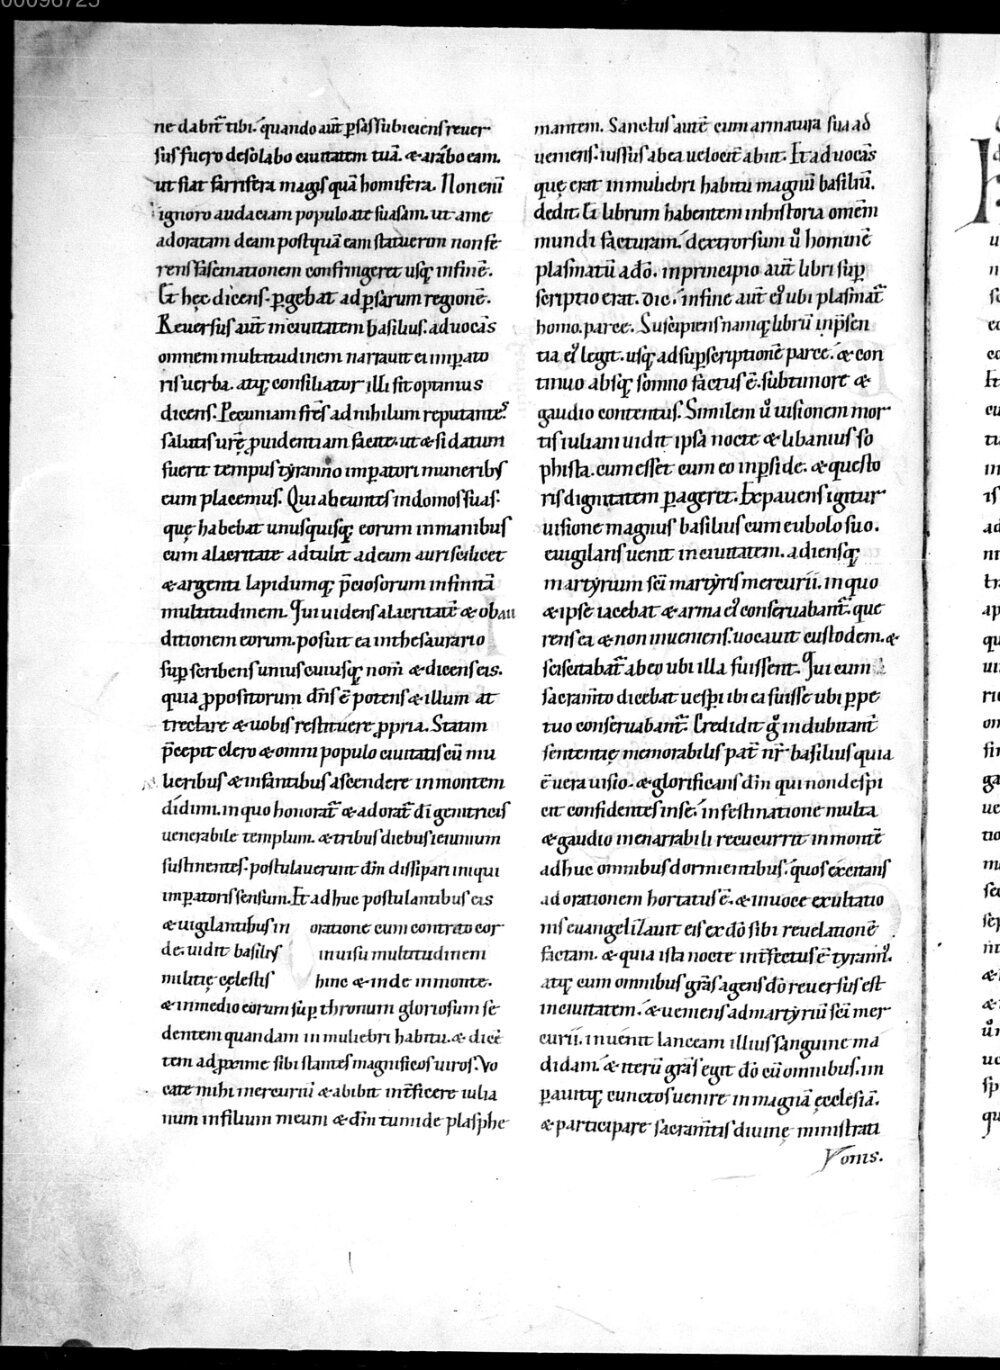 00098725
ne dabit̄ tibi. quando aut̄ ꝑsas subiciens reuer
sus fuero desolabo ciuitatem tuā. & arabo eam.
ut fiat farrifera magis quā homifera. Non eni
ignoro audaciam populo a te suasam. ut a me
adoratam deam postquā eam statueron non fe
rens fascinationem confringeret usq; in finē.
Et hęc dicens. ꝑgebat ad ꝑsarum regionē.
Reuersus aut̄ in ciuitatem basilius. aduocās
omnem multitudinem narrauit ei imꝑato
ris uerba. atq; consiliator illi fit optimus
dicens. Pecuniam fr̄es ad nihilum reputantes
salutis urę̄ ꝓuidentiam facite. ut & si datum
fuerit tempus tyranno imꝑatori muneribus
eum placemus. Qui abeuntes in domos suas.
quę habebat unusquisq; eorum in manibus
cum alacritate adtulit ad eum auri scilicet
& argenti lapidumq; p̄ciosorum infinitā
multitudinem. Qui uidens alacritatē & obau
ditionem eorum. posuit ea in thesaurario
suꝑscribens unius cuiusq; nom̄ & dicens eis.
quia ꝓpositorum dn̄s ē potens & illum at
trectare & uobis restituere ꝓpria. Statim
p̄cepit clero & omni populo ciuitatis cū mu
lieribus & infantibus ascendere in montem
didimi. in quo honorat̄ & adorat̄ dī genitricis
uenerabile templum. & tribus diebus ieiunium
sustinentes. postulauerunt dn̄m dissipari iniqui
imꝑatoris sensum. Et adhuc postulantibus eis
& uigilantibus in oratione cum contrito cor
de. uidit basilius in uisu multitudinem
militię cęlestis hinc & inde in monte.
& in medio eorum suꝑ thronum gloriosum se
dentem quandam in muliebri habitu. & dicē
tem ad proxime sibi stantes magnificos uiros. Vo
cate mihi mercuriū & abibit int̄ficere iulia
num in filium meum & dn̄m tumide plasphe
mantem. Sanctus autē cum armatura sua ad
ueniens. iussus ab ea uelocit̄ abiit. Et aduocās
quę erat in muliebri habitu magnū basiliū.
dedit. Ei librum habentem in historia omēm
mundi facturam. dextrorsum u͛o hominē
plasmatū a dō. in principio aut̄ libri suꝑ
scriptio erat. dic. in fine aut̄ ei͛ ubi plasmat̄
homo. parce. Suscipiens namq; librū in p̄sen
tia ei͛ legit. usq; ad suꝑscriptionē parce. & con
tinuo absq; somno factus ē. sub timore &
gaudio contentus. Similem u͛o uisionem mor
tis iuliani uidit ipsa nocte & libanius so
phista. cum esset cum eo in ꝑside. & questo
ris dignitatem ꝑageret. Expauens igitur
uisione magnus basilius cum eubolo suo.
euigilans uenit in ciuitatem. adiensq;
martyrium sc̄i martyris mercurii. in quo
& ipse iacebat & arma ei͛ conseruabant̄. que
rens ea & non inueniens. uocauit custodem. &
sciscitabat̄ ab eo ubi illa fuissent. Qui cum
sacram̄to dicebat uesꝑi ibi ea fuisse ubi ꝑpe
tuo conseruabant̄. Credidit g͛o indubitant̄
sententię memorabilis pat̄ nr̄ basilius quia
ē uera uisio. & glorificans dn̄m qui non despi
cit confidentes in se. in festinatione multa
& gaudio inenarrabili recucurrit in montē
adhuc omnibus dormientibus. quos excitans
ad orationem hortatus ē. & in uoce exultatio
nis euangelizauit eis ex dō sibi reuelationē
factam. & quia ista nocte int̄fectus ē tyrann͛.
atq; cum omnibus grās agens dō reuersus est
in ciuitatem. & ueniens ad martyriū sc̄i mer
curii. inuenit lanceam illius sanguine ma
didam. & iterū grās egit dō cū omnibus. im
ꝑauitq; cunctos uenire in magnā ęcclesiā.
& participare sacram̄tis diuinę ministrati
onis.